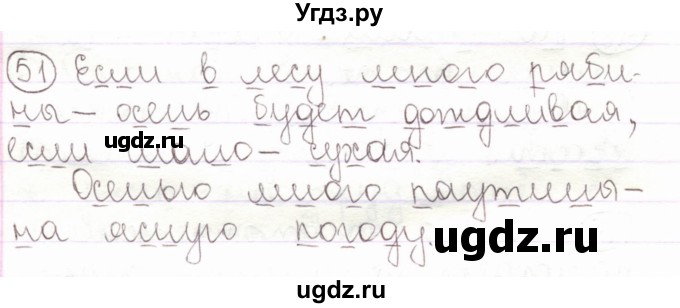 Угдз.ру
51 Если в лесу много ряби-
ны – осень будет дождливая,
если мало – сухая.
Осенью много паутины –
на ясную погоду.
ugdz.ru
ugdz.ru
ugdz.ru
ugdz.ru
ugdz.ru